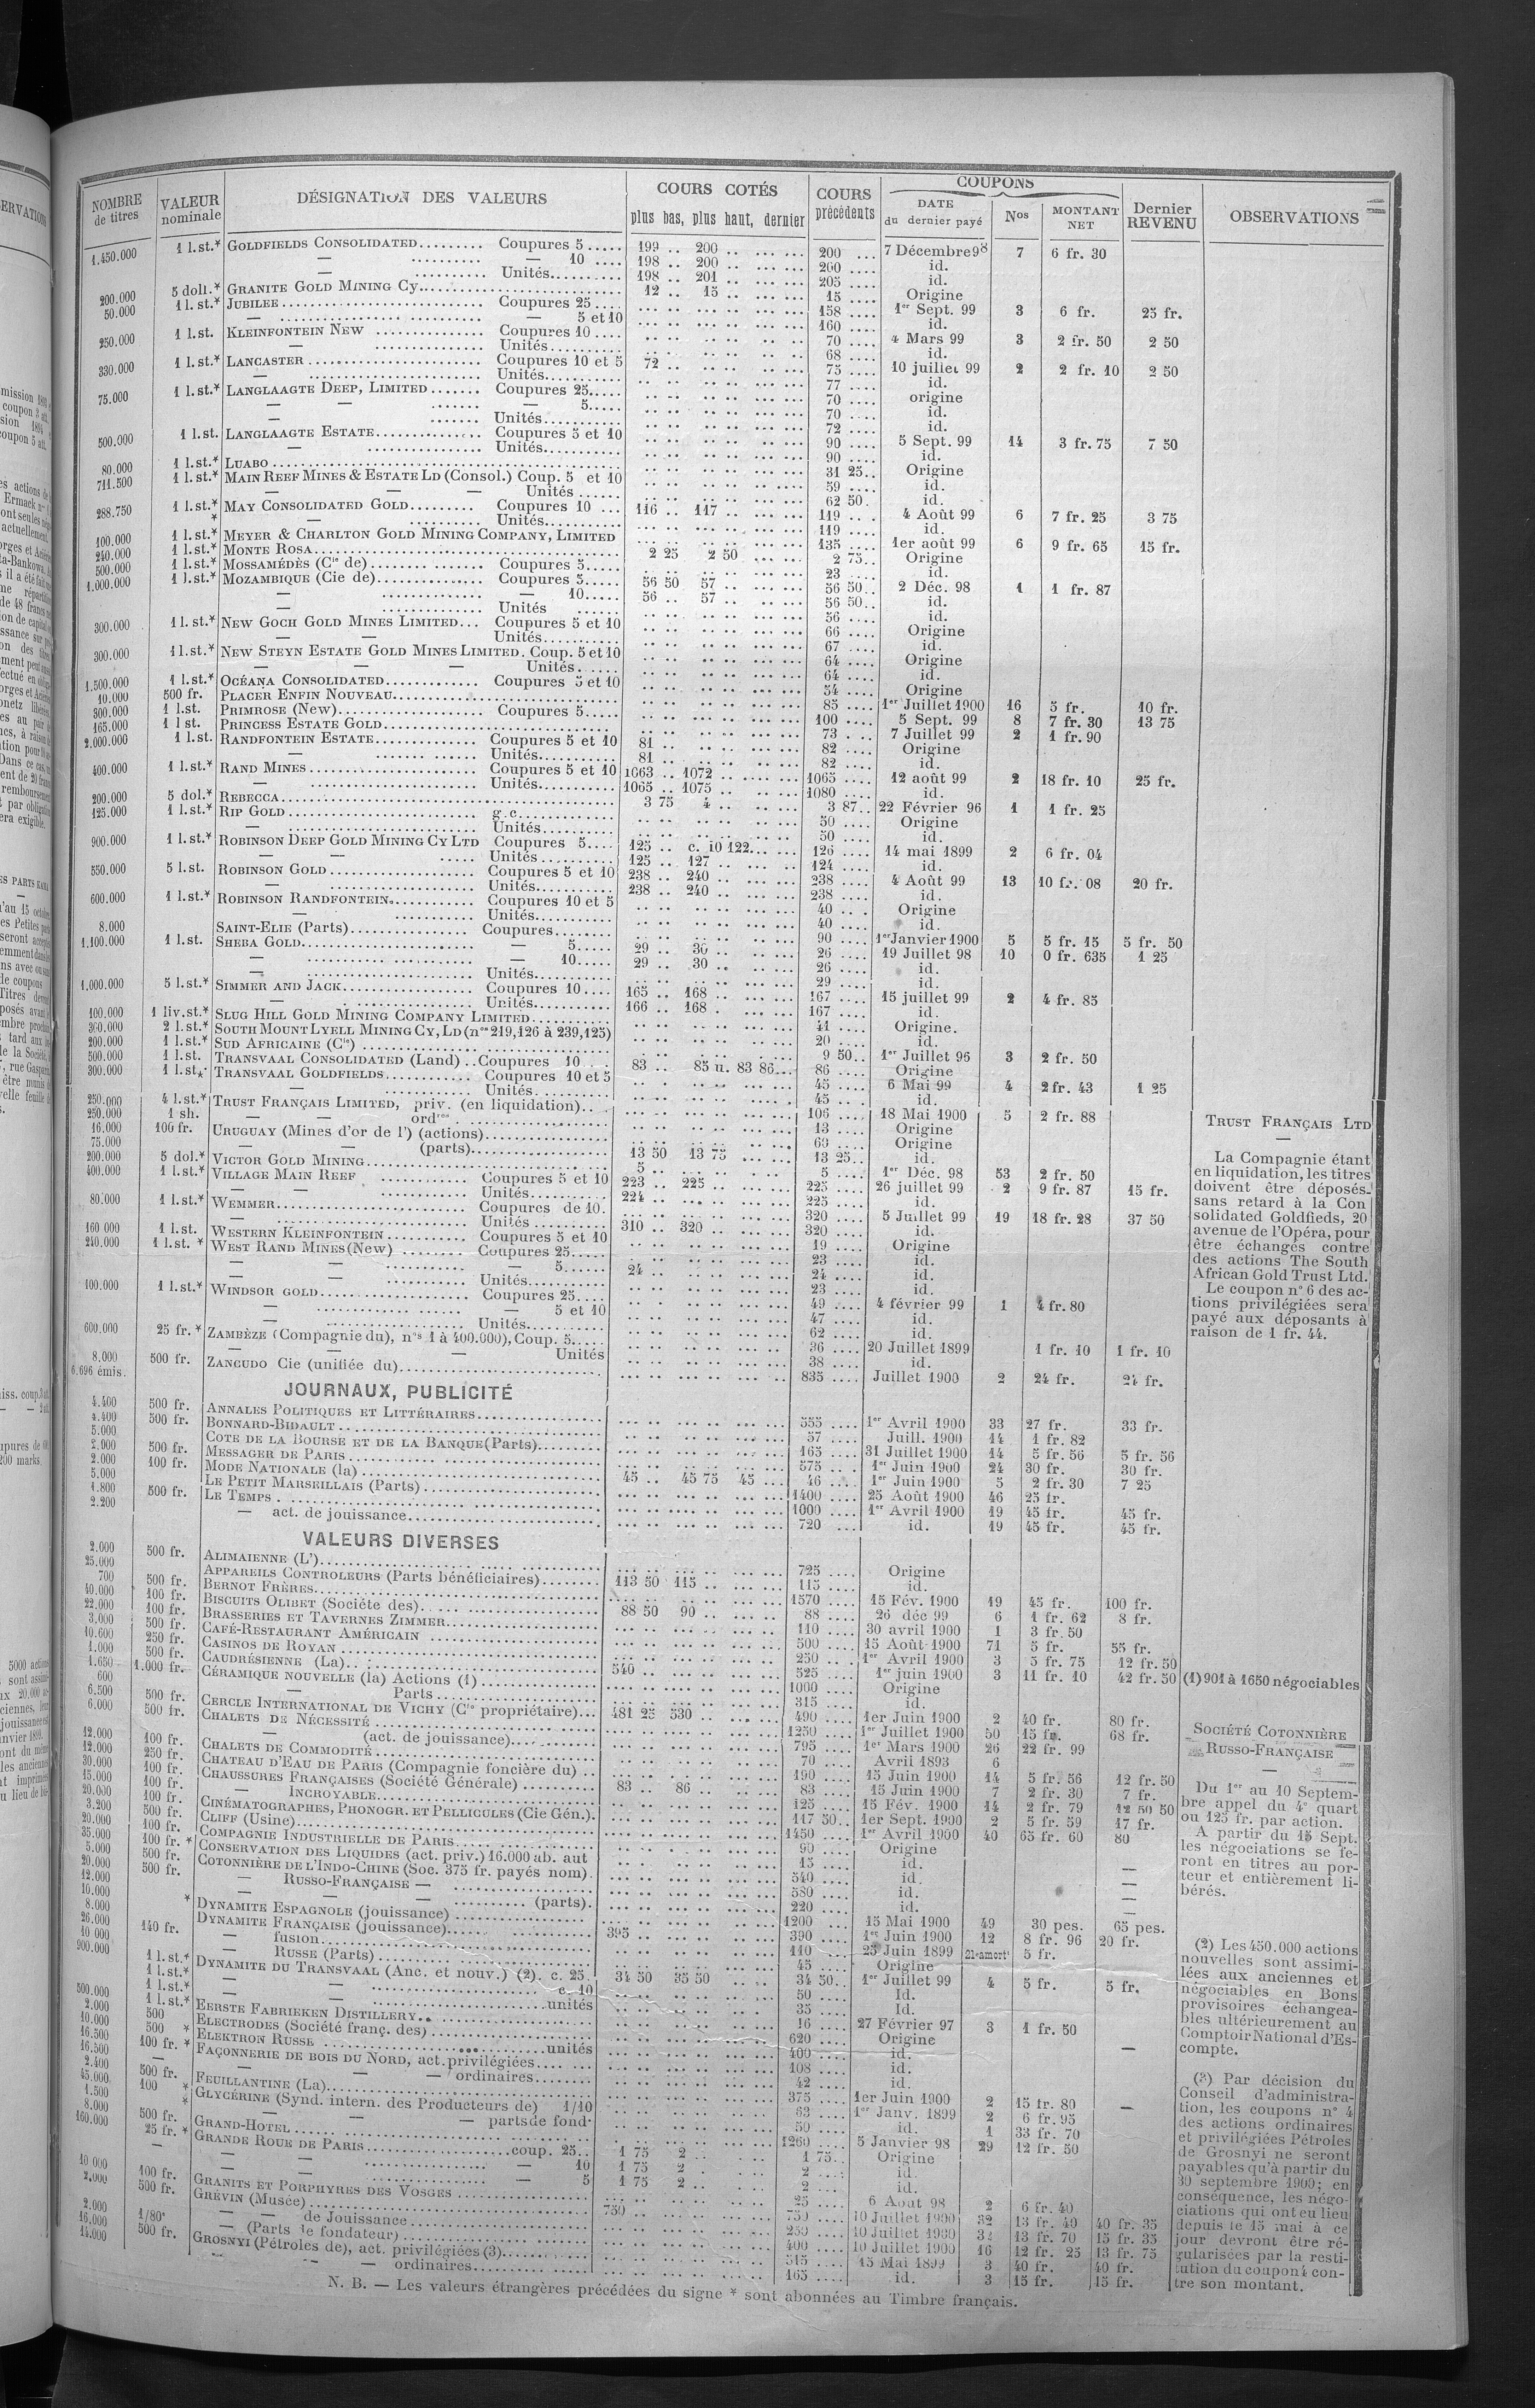 NOMBRE de titres | VALEUR nominale | DÉSIGNATION DES VALEURS | COURS COTÉS plus bas, plus haut, dernier | COURS précédents | COUPONS DATE du dernier payé | Nos | MONTANT NET | Dernier REVENU | OBSERVATIONS
1.450.000 1 l.st.* GOLDFIELDS CONSOLIDATED......... Coupures 5..... 199 .. 200 .. ... ... 200 .... 7 Décembre 98 7 6 fr. 30
— .......... — 10 .... 198 .. 200 .. ... ... 200 .... id.
— .......... Unités.......... 198 .. 201 .. ... ... 205 .... id.
200.000 5 doll.* GRANITE GOLD MINING Cy............ 12 .. 15 .. ... ... 15 .... Origine
50.000 1 l. st.* JUBILEE............ Coupures 25.... 158 .... 1er Sept. 99 3 6 fr. 25 fr.
— .......... — 5 et 10 160 .... id.
250.000 1 l.st. KLEINFONTEIN NEW .......... Coupures 10.... 70 .... 4 Mars 99 3 2 fr. 50 2 50
— .......... Unités.......... 68 .... id.
330.000 1 l.st.* LANCASTER .......... Coupures 10 et 5 72 .. 75 .... 10 juillet 99 2 2 fr. 10 2 50
— .......... Unités.......... 77 .... id.
75.000 1 l.st.* LANGLAAGTE DEEP, LIMITED....... Coupures 25..... 70 .... origine
— — ....... — 5..... 70 .... id.
— ....... Unités.......... 72 .... id.
500.000 1 l.st. LANGLAAGTE ESTATE.......... Coupures 5 et 10 90 .... 5 Sept. 99 14 3 fr. 75 7 50
— .......... Unités.......... 90 .... id.
80.000 1 l.st.* LUABO .......... 31 25.. Origine
711.500 1 l.st.* MAIN REEF MINES & ESTATE LD (Consol.) Coup. 5 et 10 59 .... id.
— — — Unités ...... 62 50. id.
288.750 1 l.st.* MAY CONSOLIDATED GOLD......... Coupures 10 ... 116 .. 117 .. 119 .... 4 Août 99 6 7 fr. 25 3 75
* — .......... Unités.......... 119 .... id.
100.000 1 l.st.* MEYER & CHARLTON GOLD MINING COMPANY, LIMITED 135 .... 1er août 99 6 9 fr. 65 15 fr.
240.000 1 l.st.* MONTE ROSA.......... 2 25 2 50 2 75.. Origine
500.000 1 l.st.* MOSSAMÉDÈS (Cie de) .......... Coupures 5..... 23 .... id.
1.000.000 1 l.st.* MOZAMBIQUE (Cie de).......... Coupures 5..... 56 50 57 .. 56 50.. 2 Déc. 98 1 1 fr. 87
— .......... — 10..... 56 .. 57 .. 56 50.. id.
— .......... Unités ...... 56 .... id.
300.000 1 l. st.* NEW GOCH GOLD MINES LIMITED... Coupures 5 et 10 66 .... Origine
— — Unités.......... 67 .... id.
300.000 1 l.st.* NEW STEYN ESTATE GOLD MINES LIMITED. Coup. 5 et 10 64 .... Origine
— — — Unités...... 64 .... id.
1.500.000 1 l.st.* OCÉANA CONSOLIDATED............ Coupures 5 et 10 54 .... Origine
10.000 500 fr. PLACER ENFIN NOUVEAU.......... 85 .... 1er Juillet 1900 16 5 fr. 10 fr.
300.000 1 l.st. PRIMROSE (New).......... Coupures 5..... 100 .... 5 Sept. 99 8 7 fr. 30 13 75
165.000 1 l st. PRINCESS ESTATE GOLD.......... 73 .... 7 Juillet 99 2 1 fr. 90
2.000.000 1 l.st. RANDFONTEIN ESTATE............. Coupures 5 et 10 81 .. 82 .... Origine
— .......... Unités.......... 81 .. 82 .... id.
400.000 1 l.st.* RAND MINES .......... Coupures 5 et 10 1063 .. 1072 .. 1065 .... 12 août 99 2 18 fr. 10 25 fr.
— .......... Unités.......... 1065 .. 1075 .. 1080 .... id.
200.000 5 dol.* REBECCA.......... 3 75 4 .. 3 87.. 22 Février 96 1 1 fr. 25
125.000 1 l.st.* RIP GOLD .......... g.c.......... 50 .... Origine
— .......... Unités.......... 50 .... id
900.000 1 l.st.* ROBINSON DEEP GOLD MINING CY LTD Coupures 5.... 125 .. c. 10 122... 126 .... 14 mai 1899 2 6 fr. 04
— — ..... Unités .......... 125 .. 127 .. 124 .... id.
550.000 5 l.st. ROBINSON GOLD .......... Coupures 5 et 10 238 .. 240 .. 238 .... 4 Août 99 13 10 fr. 08 20 fr.
— .......... Unités.......... 238 .. 240 .. 238 .... id.
600.000 1 l.st.* ROBINSON RANDFONTEIN.......... Coupures 10 et 5 40 .... Origine
— .......... Unités.......... 40 .... id.
8.000 SAINT-ELIE (Parts).......... Coupures........ 90 .... 1er Janvier 1900 5 5 fr. 15 5 fr. 50
1.100.000 1 l.st. SHEBA GOLD.......... — 5..... 29 .. 30 .. 26 .... 19 Juillet 98 10 0 fr. 635 1 25
— .......... — 10..... 29 .. 30 .. 26 .... id.
— .......... Unités.......... 29 .... id.
1.000.000 5 l.st.* SIMMER AND JACK.......... Coupures 10.... 165 .. 168 .. 167 .... 15 juillet 99 2 4 fr. 85
— .......... Unités.......... 166 .. 168 . 167 .... id.
100.000 1 liv.st.* SLUG HILL GOLD MINING COMPANY LIMITED.......... 41 .... Origine.
300.000 2 l.st.* SOUTH MOUNT LYELL MINING CY, LD (nos 219,126 à 239,125) 20 .... id.
200.000 1 l.st.* SUD AFRICAINE (Cie) .......... 9 50.. 1er Juillet 96 3 2 fr. 50
500.000 1 l.st. TRANSVAAL CONSOLIDATED (Land)..Coupures 10.... 83 .. 85 u. 83 86... 86 .... Origine
300.000 1 l.st.* TRANSVAAL GOLDFIELDS............ Coupures 10 et 5 45 .... 6 Mai 99 4 2 fr. 43 1 25
— .......... Unités.......... 45 .... id.
250.000 4 l.st.* TRUST FRANÇAIS LIMITED, priv. (en liquidation).... 106 .... 18 Mai 1900 5 2 fr. 88
250.000 1 sh. — — ordres .......... 13 .... Origine
16.000 100 fr. URUGUAY (Mines d'or de l') (actions).......... Origine
75.000 — — (parts).......... 13 50 13 75 13 25.. id.
200.000 5 dol.* VICTOR GOLD MINING.......... 5 .. 5 .... 1er Déc. 98 53 2 fr. 50
400.000 1 l.st.* VILLAGE MAIN REEF .......... Coupures 5 et 10 223 .. 225 .. 225 .... 26 juillet 99 2 9 fr. 87 15 fr.
— — .......... Unités.......... 224 .. 225 .... id.
80.000 1 l.st.* WEMMER.......... Coupures de 10. 320 .... 5 Juillet 99 19 18 fr. 28 37 50
— .......... Unités .......... 310 .. 320 .. 320 .... id.
160 000 1 l.st. WESTERN KLEINFONTEIN .......... Coupures 5 et 10 19 .... Origine
240.000 1 l.st. * WEST RAND MINES (New) ........ Coupures 25..... 23 .... id.
— — .......... — 5...... 24 .. 24 .... id.
— — .......... Unités.......... 23 .... id.
100.000 1 l.st.* WINDSOR GOLD.......... Coupures 25.... 49 .... 4 février 99 1 4 fr. 80
— .......... — 5 et 10 47 .... id.
— .......... Unités.......... 62 .... id.
600.000 25 fr.* ZAMBÈZE (Compagnie du), nos 1 à 400.000), Coup. 5..... 36 .... 20 Juillet 1899 1 fr. 10 1 fr. 10
— — — Unités 38 .... id.
8.000 6.696 émis. 500 fr. ZANCUDO Cie (unifiée du).......... 835 .... Juillet 1900 2 24 fr. 24 fr.
JOURNAUX, PUBLICITÉ
4.400 500 fr. ANNALES POLITIQUES ET LITTÉRAIRES.......... 555 .... 1er Avril 1900 33 27 fr. 33 fr.
4.400 500 fr. BONNARD-BIDAULT .......... 57 .... Juill. 1900 14 1 fr. 82
5.000 COTE DE LA BOURSE ET DE LA BANQUE (Parts).......... 165 .... 31 Juillet 1900 14 5 fr. 56 5 fr. 56
2.900 500 fr. MESSAGER DE PARIS .......... 575 .... 1er Juin 1900 24 30 fr. 30 fr.
2.000 100 fr. MODE NATIONALE (la) .......... 45 .. 45 75 45 ... 46 .... 1er Juin 1900 5 2 fr. 30 7 25
5.000 LE PETIT MARSEILLAIS (Parts) .......... 1400 .... 25 Août 1900 46 25 fr.
1.800 500 fr. LE TEMPS .......... 1000 .... 1er Avril 1900 19 45 fr. 45 fr.
2.200 — act. de jouissance.......... 720 .... id. 19 45 fr. 45 fr.
VALEURS DIVERSES
2.000 500 fr. ALIMAIENNE (L').......... 725 .... Origine
25.000 APPAREILS CONTROLEURS (Parts bénéficiaires)........ 113 50 115 .. 115 .... id.
700 500 fr. BERNOT FRÈRES.......... 1570 .... 15 Fév. 1900 19 45 fr. 100 fr.
40.000 100 fr. BISCUITS OLIBET (Sociéte des).......... 88 50 90 .. 88 .... 26 déc 99 6 1 fr. 62 8 fr.
22.000 100 fr. BRASSERIES ET TAVERNES ZIMMER.......... 110 .... 30 avril 1900 1 3 fr. 50
3.000 500 fr. CAFÉ-RESTAURANT AMÉRICAIN .......... 500 .... 15 Août 1900 71 5 fr. 55 fr.
10.600 250 fr. CASINOS DE ROYAN .......... 250 .... 1er Avril 1900 3 5 fr. 75 12 fr. 50
1.000 500 fr. CAUDRÉSIENNE (La).......... 540 .. 525 .... 1er juin 1900 3 11 fr. 10 42 fr. 50
1.650 1.000 fr. CÉRAMIQUE NOUVELLE (la) Actions (1).......... 1000 .... Origine
600 — Parts.......... 315 .... id.
6.500 500 fr. CERCLE INTERNATIONAL DE VICHY (Cie propriétaire)... 481 25 530 .. 490 .... 1er Juin 1900 2 40 fr. 80 fr.
6.000 500 fr. CHALETS DE NÉCESSITÉ .......... 1250 .... 1er Juillet 1900 50 15 fr. 68 fr.
— (act. de jouissance).......... 795 .... 1er Mars 1900 26 22 fr. 99
12.000 100 fr. CHALETS DE COMMODITÉ .......... 70 .... Avril 1893 6
12.000 250 fr. CHATEAU D'EAU DE PARIS (Compagnie foncière du) .. 190 .... 15 Juin 1900 14 5 fr. 56 12 fr. 50
30.000 100 fr. CHAUSSURES FRANÇAISES (Société Générale) .......... 83 .. 86 .. 83 .... 15 Juin 1900 7 2 fr. 30 7 fr.
15.000 100 fr. — INCROYABLE.......... 125 .... 15 Fév. 1900 14 2 fr. 79 12 50 50
20.000 100 fr. CINÉMATOGRAPHES, PHONOGR. ET PELLICULES (Cie Gén.). 117 50.. 1er Sept. 1900 2 5 fr. 59 17 fr.
3.200 500 fr. CLIFF (Usine).......... 1450 .... 1er Avril 1900 40 65 fr. 60 80
20.000 100 fr. COMPAGNIE INDUSTRIELLE DE PARIS.......... 90 .... Origine
35.000 100 fr. * CONSERVATION DES LIQUIDES (act. priv.) 16.000 ab. aut 15 .... id.
5.000 500 fr. COTONNIÈRE DE L'INDO-CHINE (Soc. 375 fr. payés nom). 540 .... id. —
20.000 500 fr. — RUSSO-FRANÇAISE — .......... 580 .... id. —
12.000 — — — (parts). 220 .... id. —
10.000 * DYNAMITE ESPAGNOLE (jouissance) .......... 1200 .... 15 Mai 1900 49 30 pes. 65 pes.
8.000 DYNAMITE FRANÇAISE (jouissance).......... 395 .. 390 .... 1er Juin 1900 12 8 fr. 96 20 fr.
26.000 140 fr. — fusion.......... 110 .... 25 Juin 1899 21e amort 5 fr.
10 000 — RUSSE (Parts).......... 45 .... Origine
900.000 1 l.st.* DYNAMITE DU TRANSVAAL (Anc. et nouv.) (2). c. 25. 34 50 35 50 34 50.. 1er Juillet 99 4 5 fr. 5 fr.
1 l.st.* — — .......... c. 10 50 .... Id.
1 l.st.* — — .......... unités 35 .... Id.
500.000 1 l.st.* EERSTE FABRIEKEN DISTILLERY.......... 16 .... 27 Février 97 3 1 fr. 50
2.000 500 ELECTRODES (Société franç. des).......... 620 .... Origine
10.000 500 * ELEKTRON RUSSE .......... unités 400 .... id. —
16.500 100 fr. * FAÇONNERIE DE BOIS DU NORD, act. privilégiées.......... 108 .... id.
16.500 — — — ordinaires.......... 42 .... id.
2.400 500 fr. FEUILLANTINE (La).......... 375 .... 1er Juin 1900 2 15 fr. 80 —
45.000 100 * GLYCÉRINE (Synd. intern. des Producteurs de) 1/10 63 .... 1er Janv. 1899 2 6 fr. 95
1.500 * — — — parts de fond. 50 .... id. 1 33 fr. 70
8.000 500 fr. GRAND-HOTEL .......... 1260 .... 5 Janvier 98 29 12 fr. 50
160.000 25 fr. * GRANDE ROUE DE PARIS.......... coup. 25.. 1 75 2 .. 1 75.. Origine
— — — .......... — 10 1 75 2 . 2 .... id
— — .......... — 5 1 75 2 .. 2 .... id.
10 000 100 fr. GRANITS ET PORPHYRES DES VOSGES .......... 25 .... 6 Aout 98 2 6 fr. 40
2.000 500 fr. GRÉVIN (Musée) .......... 750 .. 750 .... 10 Juillet 1900 32 13 fr. 40 40 fr. 35
— — de Jouissance .......... 250 .... 10 Juillet 1900 32 13 fr. 70 15 fr. 35
2.000 1/80e — (Parts de fondateur) .......... 400 .... 10 Juillet 1900 16 12 fr. 25 13 fr. 75
16.000 500 fr. GROSNYI (Pétroles de), act. privilégiées (3).......... 515 .... 15 Mai 1899 3 40 fr. 40 fr.
14.000 — — — ordinaires.......... 165 .... id. 3 15 fr. 15 fr.
N. B. — Les valeurs étrangères précédées du signe * sont abonnées au Timbre français.
TRUST FRANÇAIS LTD
—
La Compagnie étant
en liquidation, les titres
doivent être déposés
sans retard à la Con
solidated Goldfieds, 20
avenue de l'Opéra, pour
être échangés contre
des actions The South
African Gold Trust Ltd.
Le coupon n° 6 des ac-
tions privilégiées sera
payé aux déposants à
raison de 1 fr. 44.
(1) 901 à 1650 négociables
SOCIÉTÉ COTONNIÈRE
RUSSO-FRANÇAISE
—
Du 1er au 10 Septem-
bre appel du 4e quart
ou 125 fr. par action.
A partir du 15 Sept.
les négociations se fe-
ront en titres au por-
teur et entièrement li-
bérés.
(2) Les 450.000 actions
nouvelles sont assimi-
lées aux anciennes et
négociables en Bons
provisoires échangea-
bles ultérieurement au
Comptoir National d'Es-
compte.
(3) Par décision du
Conseil d'administra-
tion, les coupons n° 4
des actions ordinaires
et privilégiées Pétroles
de Grosnyi ne seront
payables qu'à partir du
30 septembre 1900; en
conséquence, les négo-
ciations qui ont eu lieu
depuis le 15 mai à ce
jour devront être ré-
gularisées par la resti-
tution du coupon 4 con-
tre son montant.